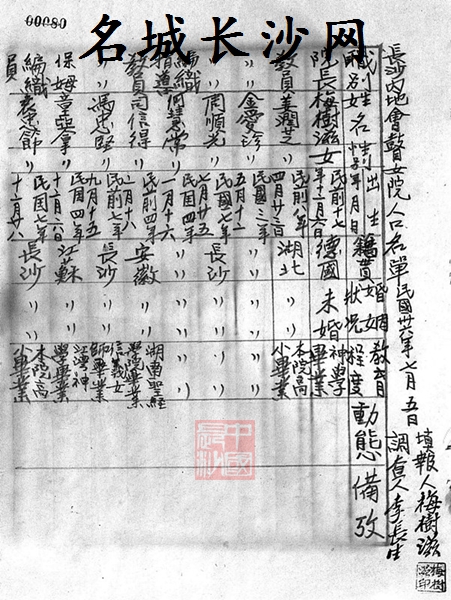 00080
名城长沙网
長沙內地會瞽女院人口名單 民國卅六年七月五日
填報人梅樹滋
調查人李長生
職別 姓名 性別 出生年月日 籍貫 婚姻狀況 教育程度 動態 備攷
院長 梅樹滋 女 民前十七年十一月六日 德國 未婚 神學畢業
教員 姜潤芝 〃 民前八年四月廿二日 湖北 〃 本院高小畢業
〃 金愛珍 〃 民國三年五月十一 〃 〃 〃
〃 周順光 〃 民國四年七月廿五 長沙 〃 〃
編織指導 何慧常 〃 民前四年一月十六 〃 〃 〃
教員 司信得 〃 民前七年 安徽 〃 湖南聖經學院畢業
〃 馮忠堅 〃 民國四年九月十五 長沙 〃 信義女師畢業
保姆 〃 江蘇 〃 神學畢業
編織員 〃 民國七年十二月廿八 長沙 〃 本院高小畢業
中國長沙
梅樹滋印